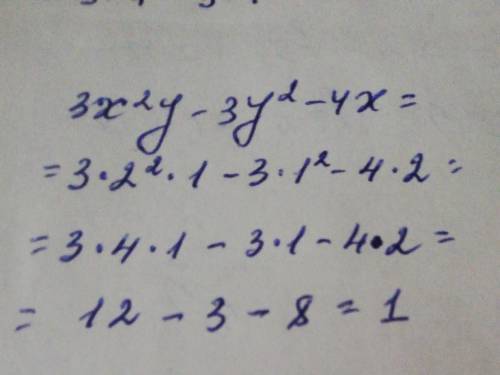 3x²y - 3y² - 4x =
= 3·2²·1 - 3·1² - 4·2 =
= 3·4·1 - 3·1 - 4·2 =
= 12 - 3 - 8 = 1